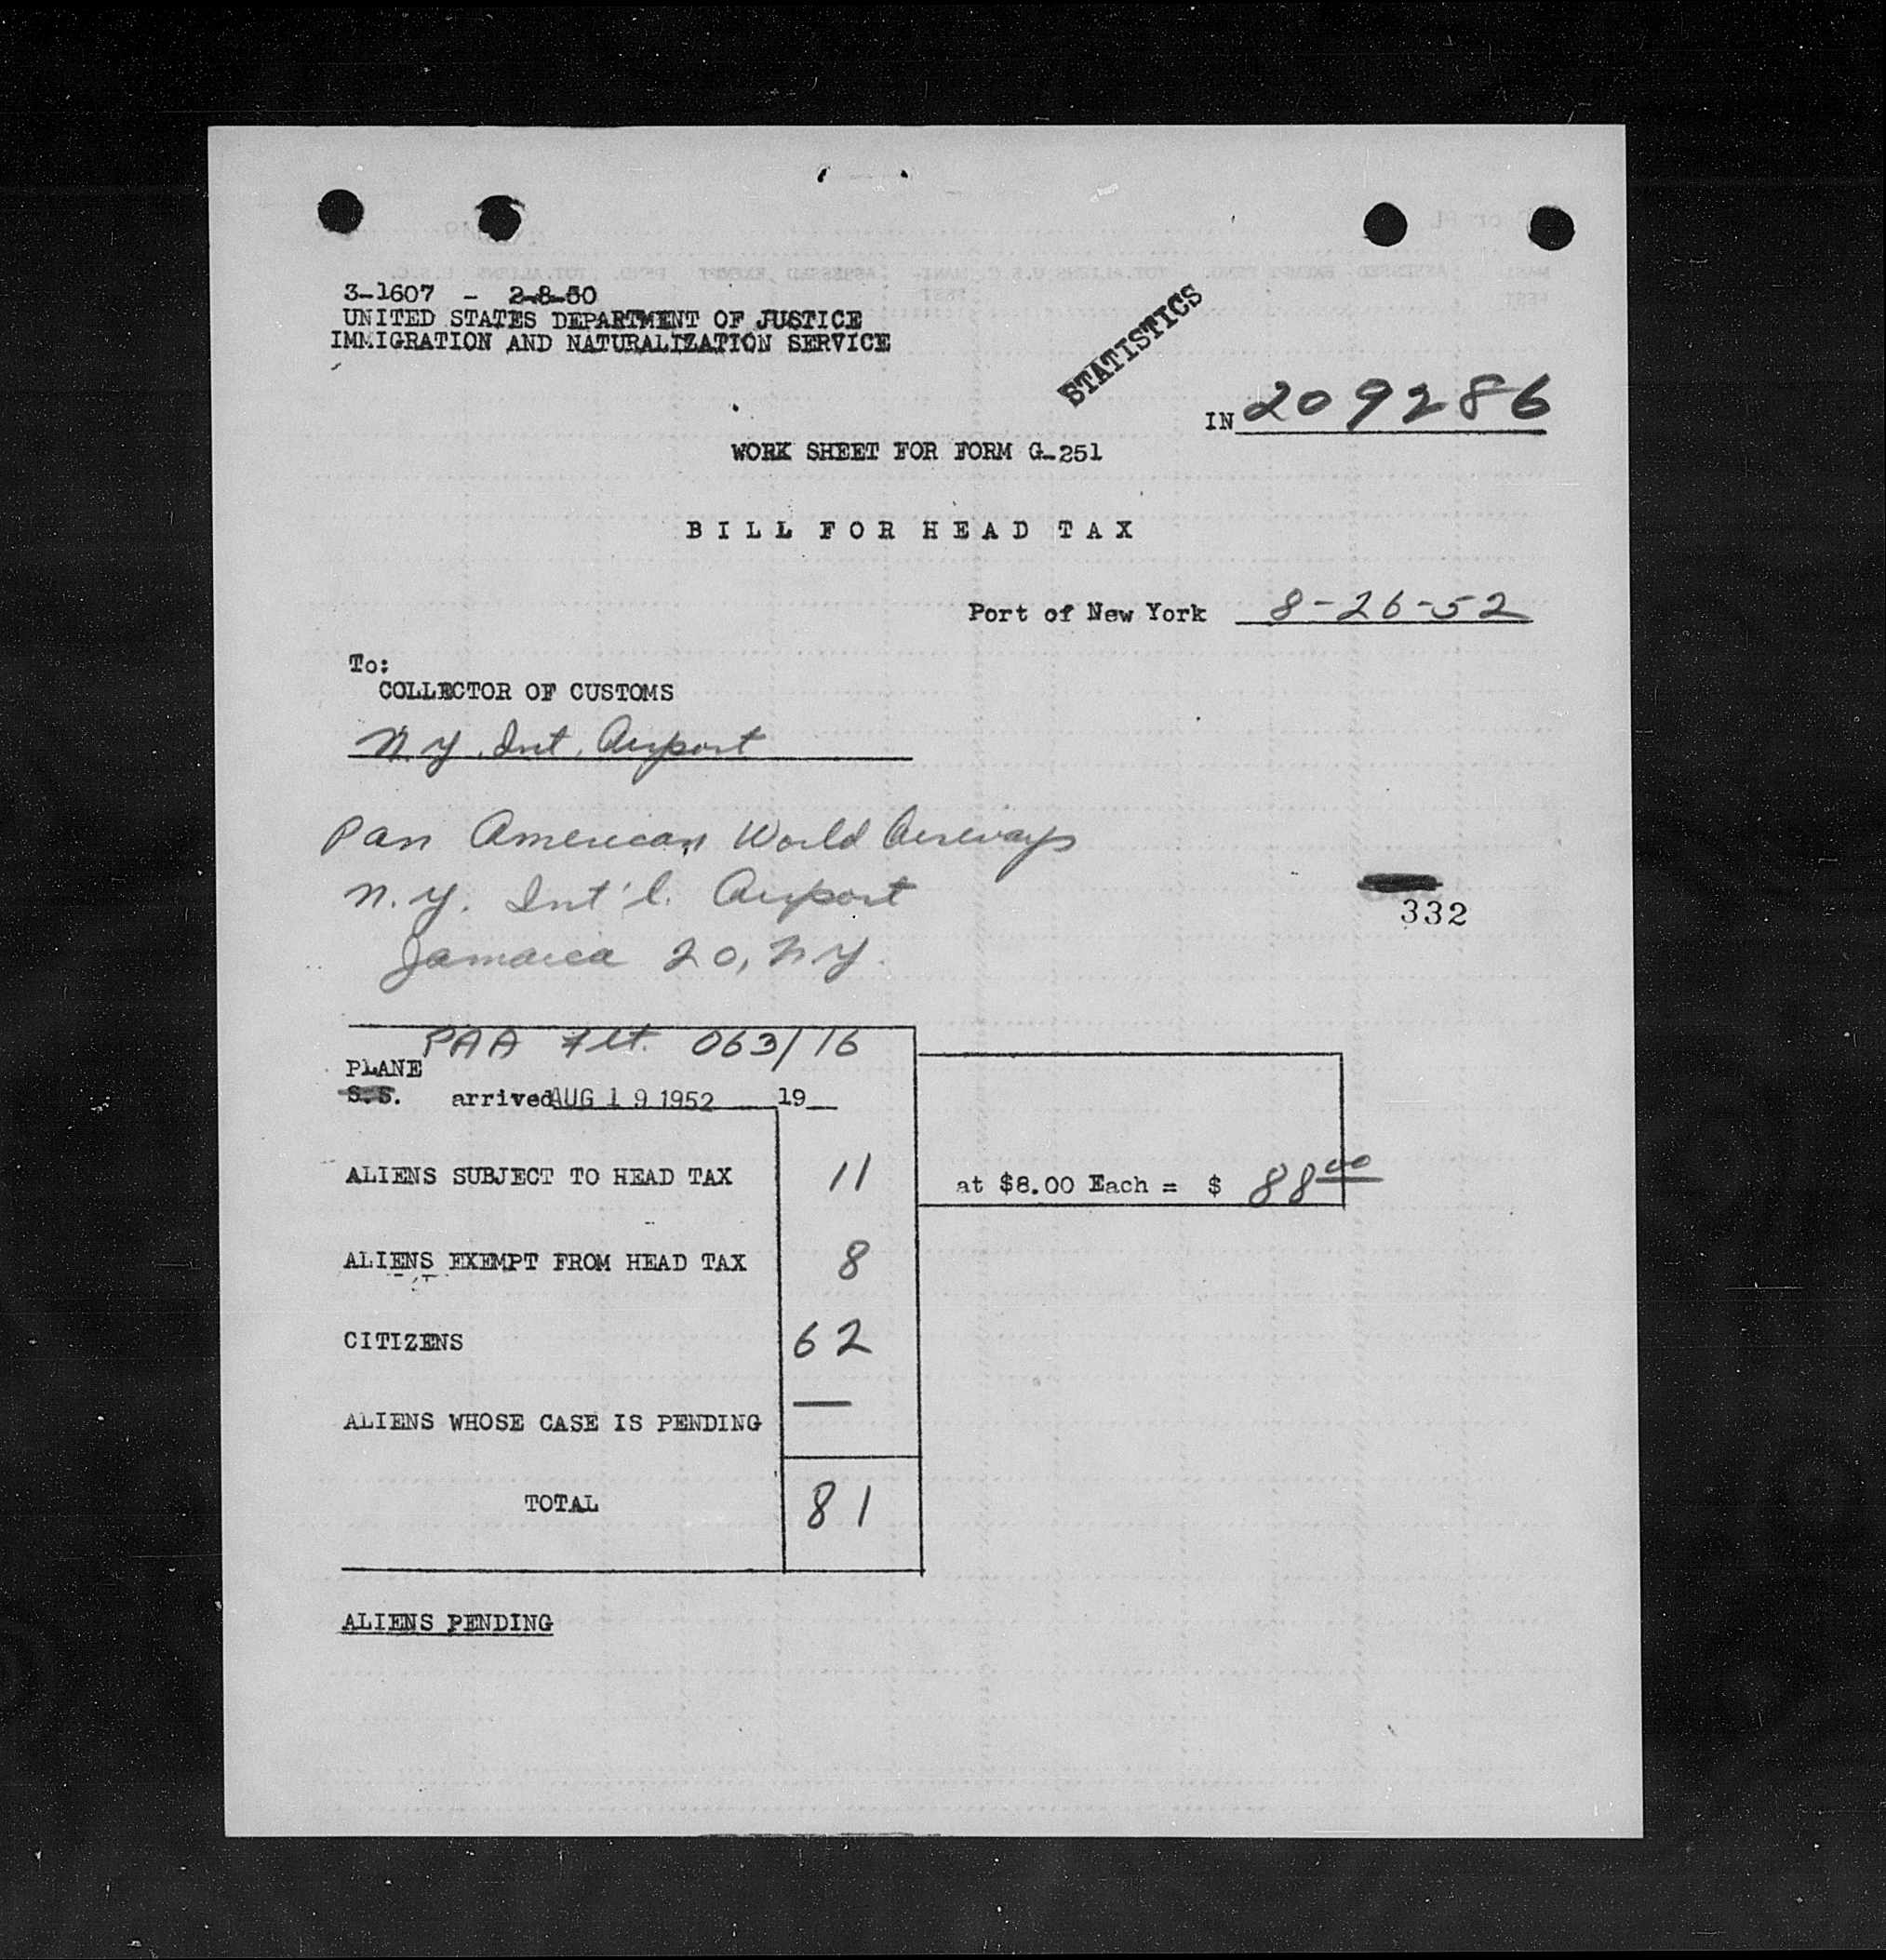 3-1607 - 2-8-50
UNITED STATES DEPARTMENT OF JUSTICE
IMMIGRATION AND NATURALIZATION SERVICE
STATISTICS
IN 209286
WORK SHEET FOR FORM G-251
BILL FOR HEAD TAX
Port of New York 8-26-52
To:
COLLECTOR OF CUSTOMS
N.Y. Int. Airport
Pan American World Airways
N.Y. Int'l. Airport
332
Jamaica 20, N.Y.
PAA Flt. 063/16
PLANE
S.S. arrived AUG 19 1952 19
ALIENS SUBJECT TO HEAD TAX 11 at $8.00 Each = $ 88 00
ALIENS EXEMPT FROM HEAD TAX 8
CITIZENS 62
ALIENS WHOSE CASE IS PENDING —
TOTAL 81
ALIENS PENDING